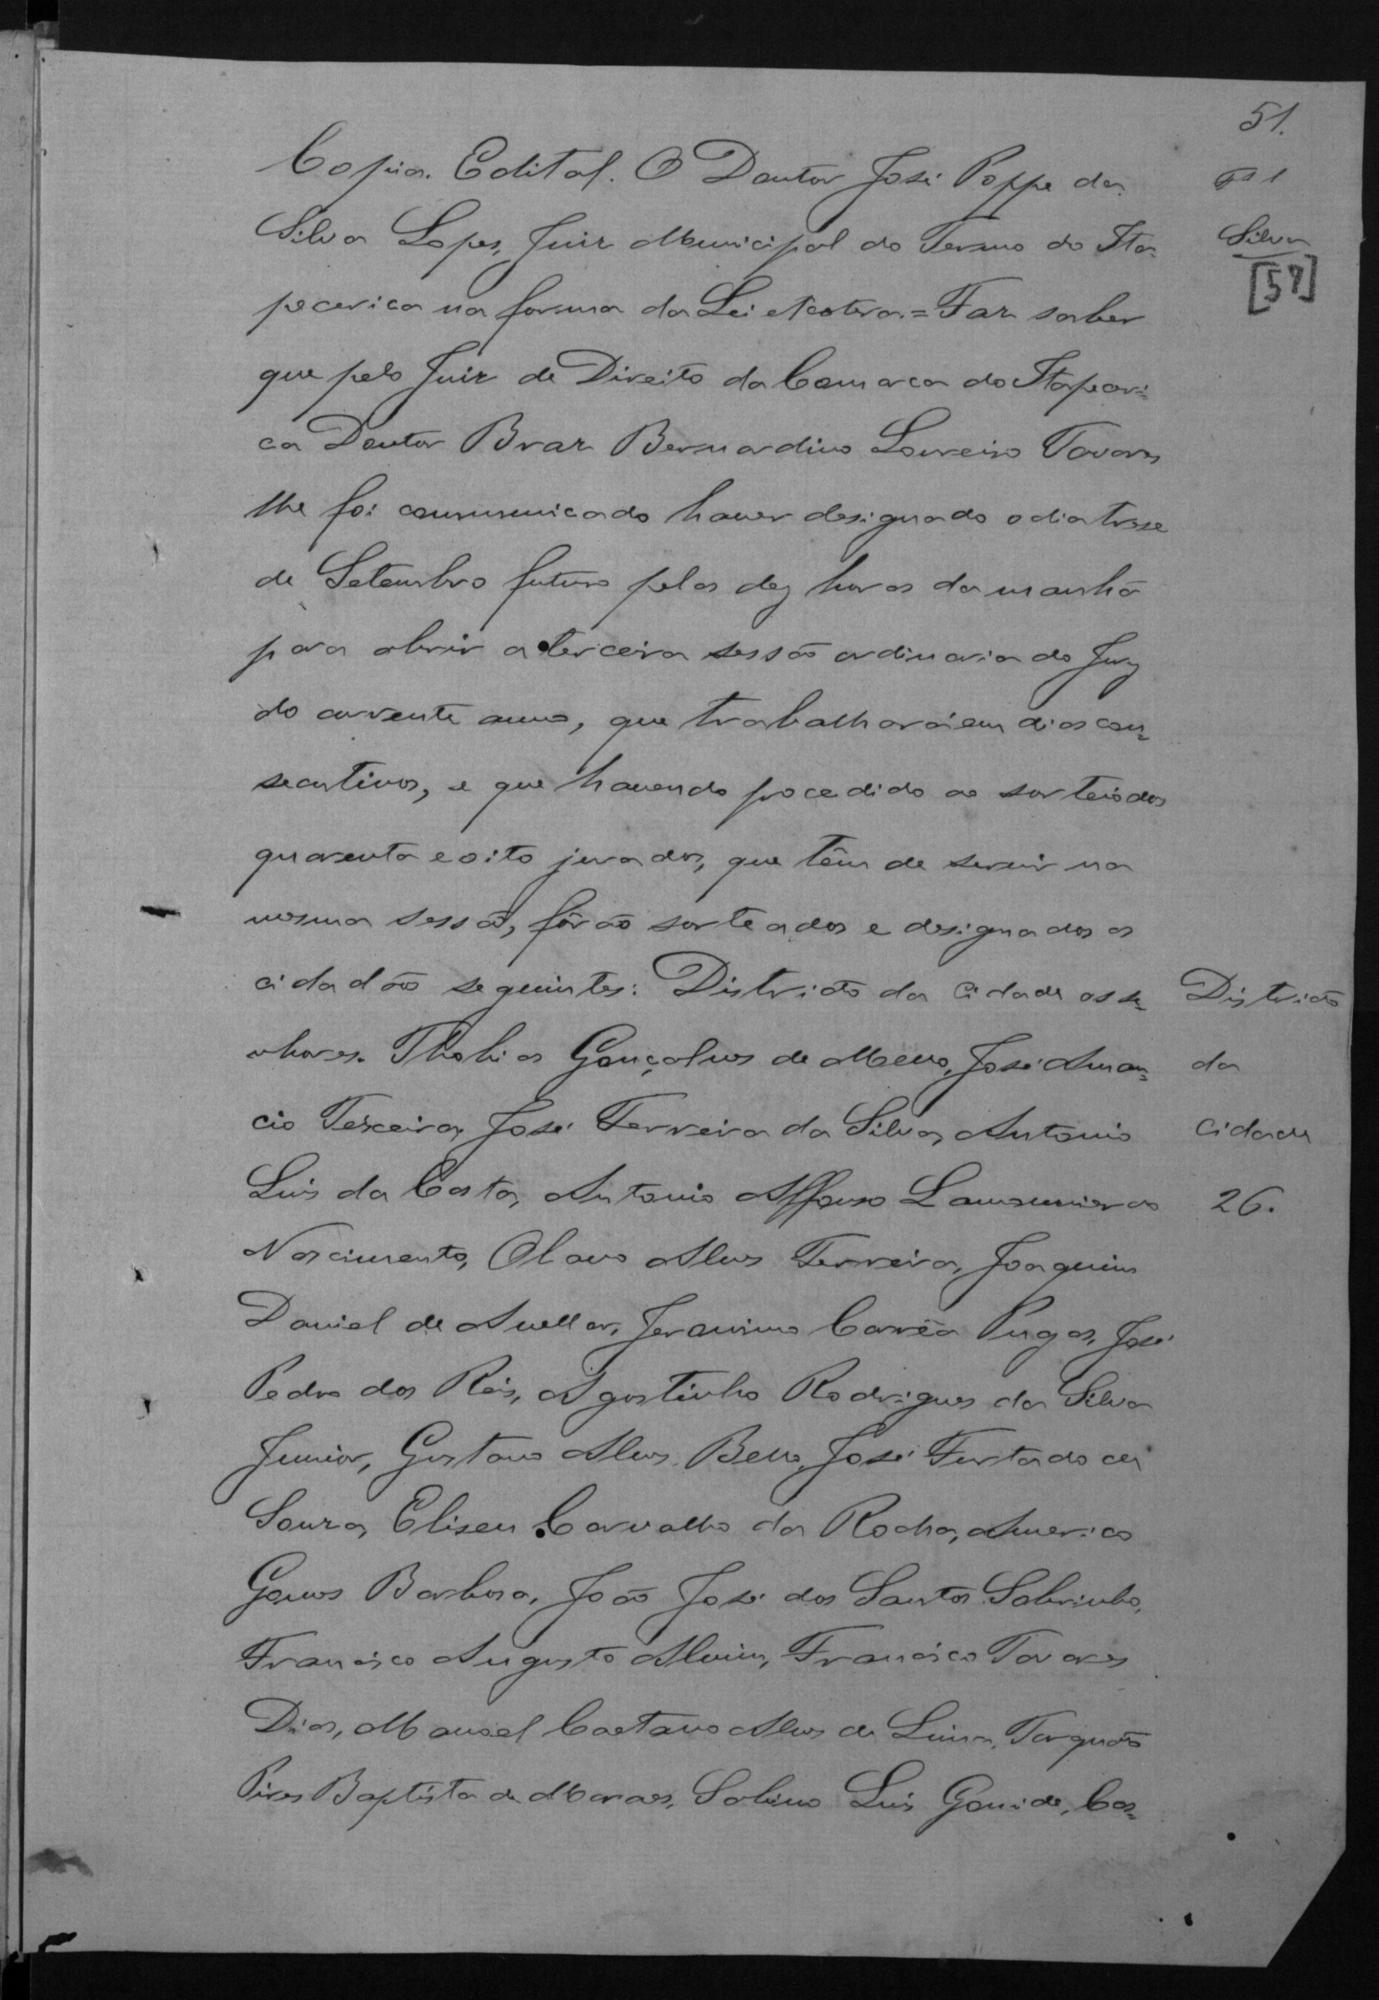 51.
Copia. Edital. O Doutor José Poppe da
Silva Lopes, Juiz Municipal do Termo do Ita-
Silva
[57]
pecerica na forma da Lei etcetera.= Faz saber
que pelo Juiz de Direito da Comarca do Itapeceri=
ca Doutor Braz Bernardino Loureiro Tavares
lhe foi communicado haver designado o dia trese
de Setembro futuro pelas dez horas da manhã
para abrir a terceira sessão ordinaria do Jury
do corrente anno, que trabalhará em dias con=
secutivos, e que havendo procedido ao sorteio dos
quarenta e oito jurados, que têm de servir na
mesma sessão, fôrão sorteados e designados os
cidadãos seguintes: Districto da Cidade os se=
Districto
nhores. Thobias Gonçalves de Mello, José Aman=
da
cio Teixeira, José Ferreira da Silva, Antonio
cidade
Luis da Costa, Antonio Affonso Lamounier do
26.
Nascimento, Olavo Alves Ferreira, Joaquim
Daniel de Avellar, Jeronimo Corrêa Pugas, José
Pedro dos Reis, Agostinho Rodrigues da Silva
Junior, Gustavo Alves Bello, José Furtado de
Souza, Eliseu Carvalho da Rocha, Americo
Gomes Barbosa, João José dos Santos Sobrinho,
Francisco Augusto Alvim, Francisco Tavares
Dias, Manoel Caetano Alves de Lima, Torquato
Pires Baptista de Moraes, Sabino Luis Gomide, Cas=